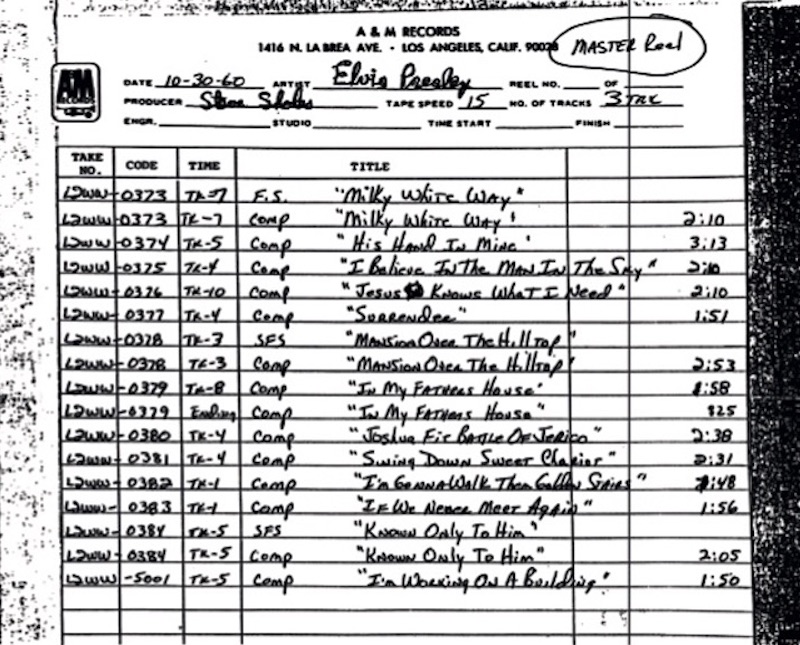 A & M RECORDS
1416 N. LA BREA AVE. · LOS ANGELES, CALIF. 90028
MASTER Reel
A&M RECORDS
DATE 10-30-60 ARTIST Elvis Presley REEL NO. OF
PRODUCER Steve Sholes TAPE SPEED 15 NO. OF TRACKS 3 TRK
ENGR. STUDIO TIME START FINISH
TAKE NO. CODE TIME TITLE
L2WW-0373 TK-7 F.S. "Milky White Way"
L2WW-0373 TK-7 Comp "Milky White Way" 2:10
L2WW-0374 TK-5 Comp "His Hand In Mine" 3:13
L2WW-0375 TK-4 Comp "I Believe In The Man In The Sky" 2:10
L2WW-0376 TK-10 Comp "Jesus Knows What I Need" 2:10
L2WW-0377 TK-4 Comp "Surrender" 1:51
L2WW-0378 TK-3 SFS "Mansion Over The Hilltop"
L2WW-0378 TK-3 Comp "Mansion Over The Hilltop" 2:53
L2WW-0379 TK-8 Comp "In My Fathers House" 1:58
L2WW-0379 Ending Comp "In My Fathers House"
L2WW-0380 TK-4 Comp "Joshua Fit Battle Of Jerico" 2:38
L2WW-0381 TK-4 Comp "Swing Down Sweet Chariot" 2:31
L2WW-0382 TK-1 Comp "I'm Gonna Walk Them Golden Stairs" :48
L2WW-0383 TK-1 Comp "If We Never Meet Again" 1:56
L2WW-0384 TK-5 SFS "Known Only To Him"
L2WW-0384 TK-5 Comp "Known Only To Him" 2:05
L2WW-5001 TK-5 Comp "I'm Working On A Building" 1:50